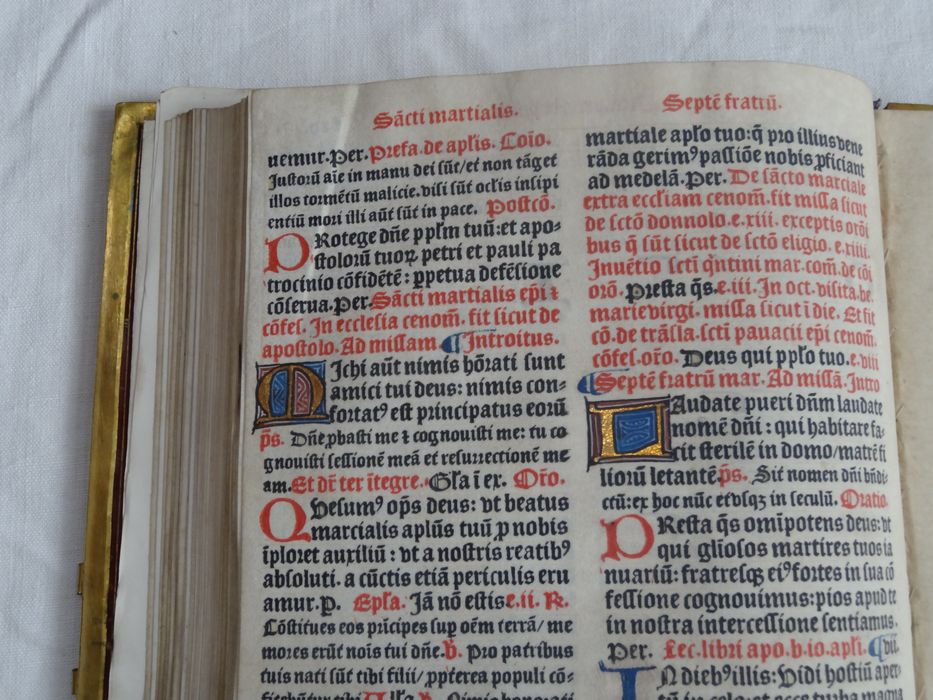 Sãcti martialis.
uemur. Per. Prefa. de apłis. Cõio.
Iustorũ aĩe in manu dei sũt/et non tãget
illos tormẽtũ malicie. visi sũt oclis insipi
entiũ mori illi aũt sũt in pace. Postcõ.
PRotege dñe ppłm tuũ: et apo=
stolorũ tuoꝝ petri et pauli pa
trocinio cõfidẽtẽ: ꝑpetua defẽsione
cõserua. Per. Sãcti martialis epĩ ⁊
cõfes. In ecclesia cenom̃. fit sicut de
apostolo. Ad missam ¶ Introitus.
MIchi aũt nimis hõrati sunt
amici tui deus: nimis con=
fortatꝰ est principatus eorũ
p̃s. Dñe ꝓbasti me ⁊ cognouisti me: tu co
gnouisti sessionẽ meã et resurrectionẽ me
am. Et dr̃ ter ĩtegre. Gła ĩ ex. Oĩo.
QVesumꝰ op̃s deus: vt beatus
marcialis apłus tuũ p nobis
ĩploret auxiliũ: vt a nostris reatibꝰ
absoluti. a cũctis etiã periculis eru
amur. P. Epła. Iã nõ estis e. ii. R.
Cõstitues eos prĩcipes suꝑ oẽm terrã/ me
mores erũt noĩs tui dñe. V̇. Pro patribus
tuis nati sũt tibi filii/ ꝓpterea populi cõ=
fitebũtur tibi Alła V̇. Nimis honorati
Septẽ fratrũ.
martiale apło tuo: q̃ pro illius vene
rãda gerimꝰ passiõe nobis ꝓficiant
ad medelã. Per. De sãcto marciale
extra eccłiam cenom̃. fit missa sicut
de sctõ donnolo. e. xiii. exceptis orõi
bus q̃ sũt sicut de sctõ eligio. e. xiiii.
Inuẽtio scti q̃ntini mar. com̃. de cõi
orõ. Presta q̃s. e. iii. In oct. visita. be.
marie virgi. missa sicut ĩ die. Et fit
cõ. de trãsla. scti pauacii epĩ cenom̃.
cõfes. orõ. Deus qui ppło tuo. e. viii
¶ Septẽ fratrũ mar. Ad missã. Intro
LAudate pueri dñm laudate
nomẽ dñi: qui habitare fa=
cit sterilẽ in domo/matrẽ fi
liorũ letantẽ p̃s. Sit nomen dñi bñdi=
ctũ: ex hoc nũc et vsqꝫ in seculũ. Oratio
PResta q̃s omĩpotens deus: vt
qui glĩosos martires tuos ia
nuariũ: fratresqꝫ eiꝰ fortes in sua cõ
fessione cognouimus: pios apud te
in nostra intercessione sentiamus.
Per. Lec. libri apo. b. io. apłi. ¶ vii.
IN diebꝰ illis: Vidi hostiũ aper=